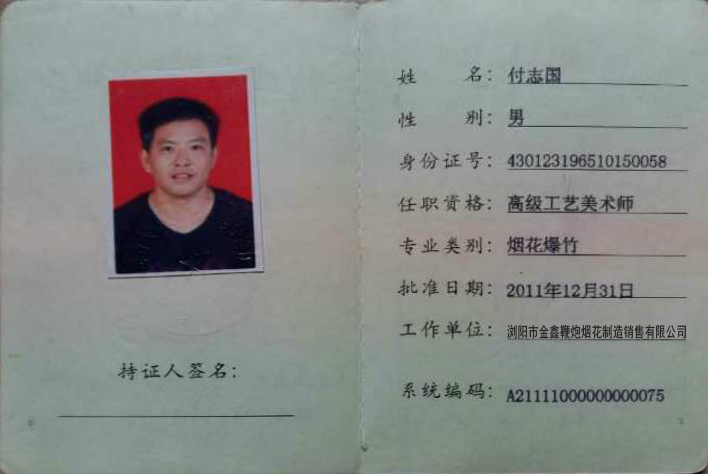 持证人签名：
姓 名：付志国
性 别：男
身份证号：430123196510150058
任职资格：高级工艺美术师
专业类别：烟花爆竹
批准日期：2011年12月31日
工作单位：浏阳市金鑫鞭炮烟花制造销售有限公司
系统编码：A21111000000000075